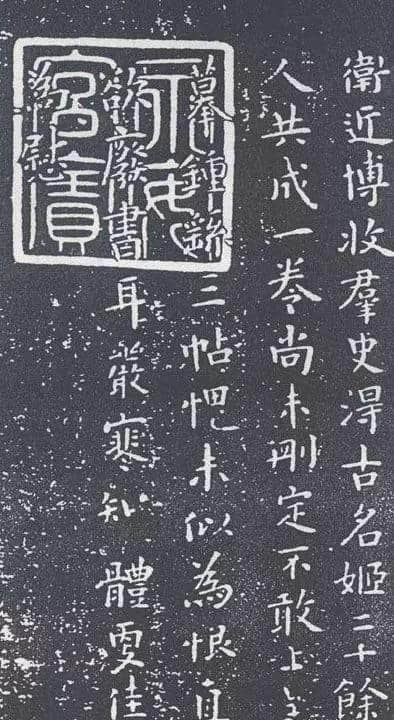 衛近博收羣史淂古名姬二十餘
人共成一卷尚未刪定不敢上
摹鍾繇三帖未似為恨直
欲廢書耳嚴寒知體更佳
為慰